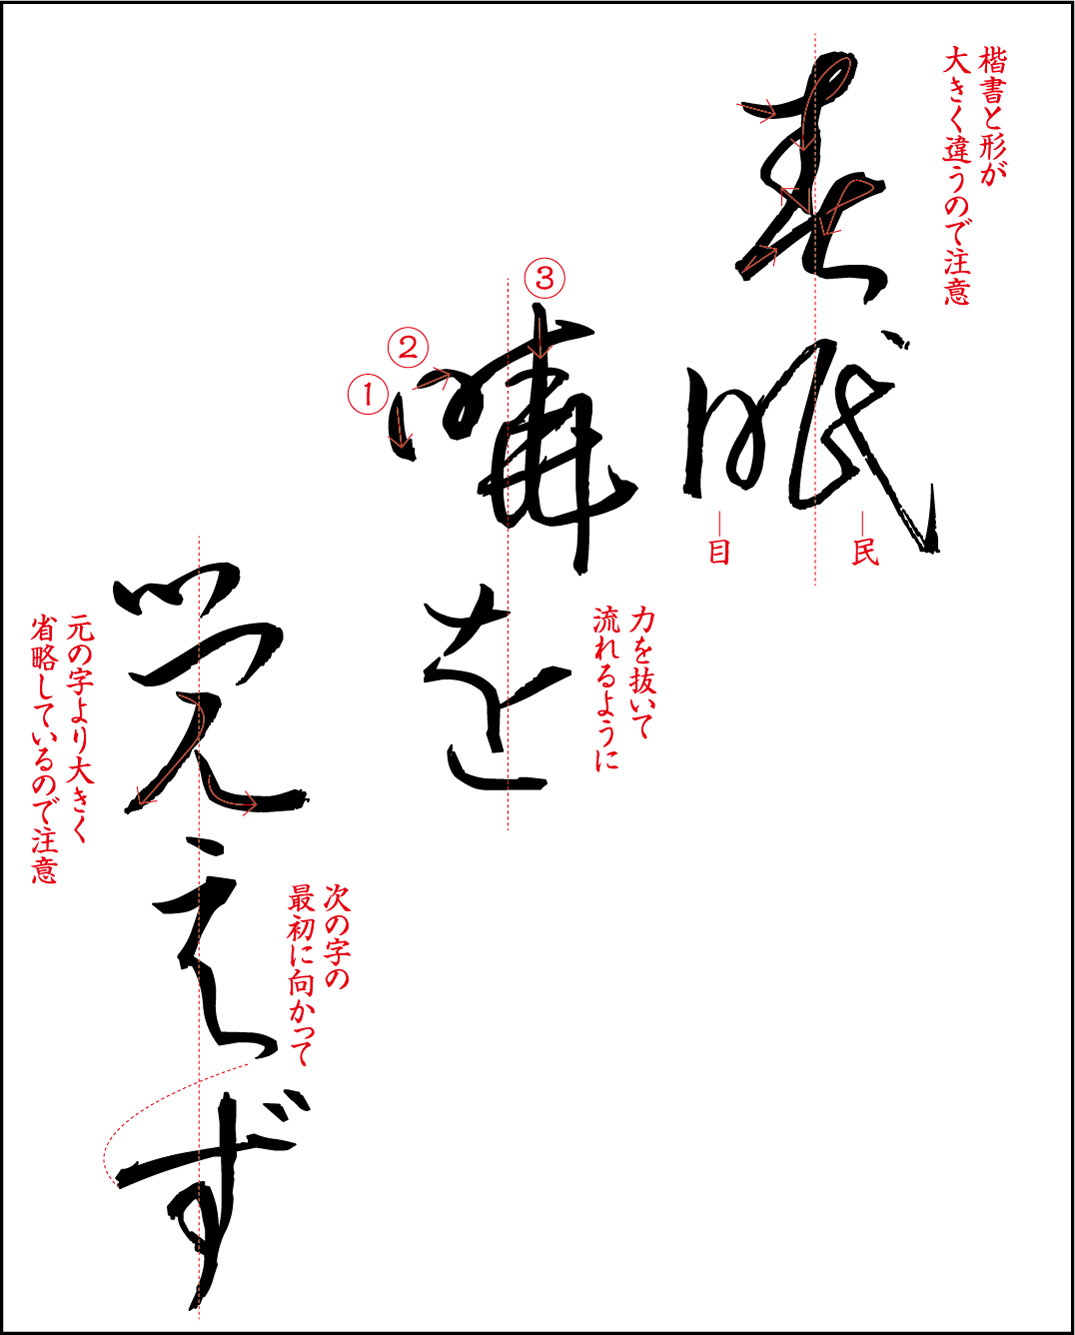 楷書と形が
大きく違うので注意
春眠
民
目
力を抜いて
流れるように
暁を
③
②
①
次の字の
最初に向かって
覚えず
元の字より大きく
省略しているので注意